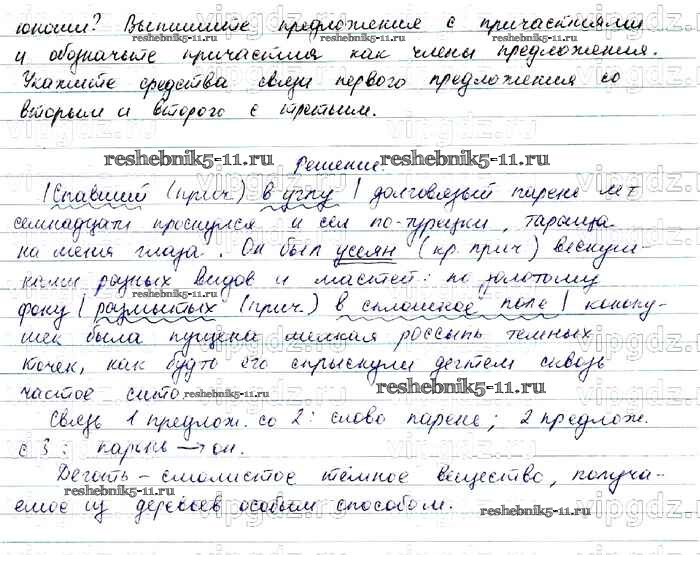 юноши? Выпишите предложения с причастиями
и обозначьте причастия как члены предложения.
Укажите средства связи первого предложения со
вторым и второго с третьим.
reshebnik5-11.ru
Решение.
|Спавший (прич.) в углу| долговязый парень лет
семнадцати проснулся и сел по-турецки, тараща
на меня глаза. Он был усеян (кр. прич) веснуш-
ками разных видов и мастей: по золотому
reshebnik5-11.ru
фону |размытых (прич.) в сплошное поле| конопу-
шек была пущена мелкая россыпь темных
точек, как будто его спрыснули дегтем сквозь
частое сито.
reshebnik5-11.ru
Связь 1 предлож. со 2: слово парень; 2 предлож.
с 3: парень → он.
Деготь – смолистое тёмное вещество, получа-
reshebnik5-11.ru
емое из деревьев особым способом.
reshebnik5-11.ru